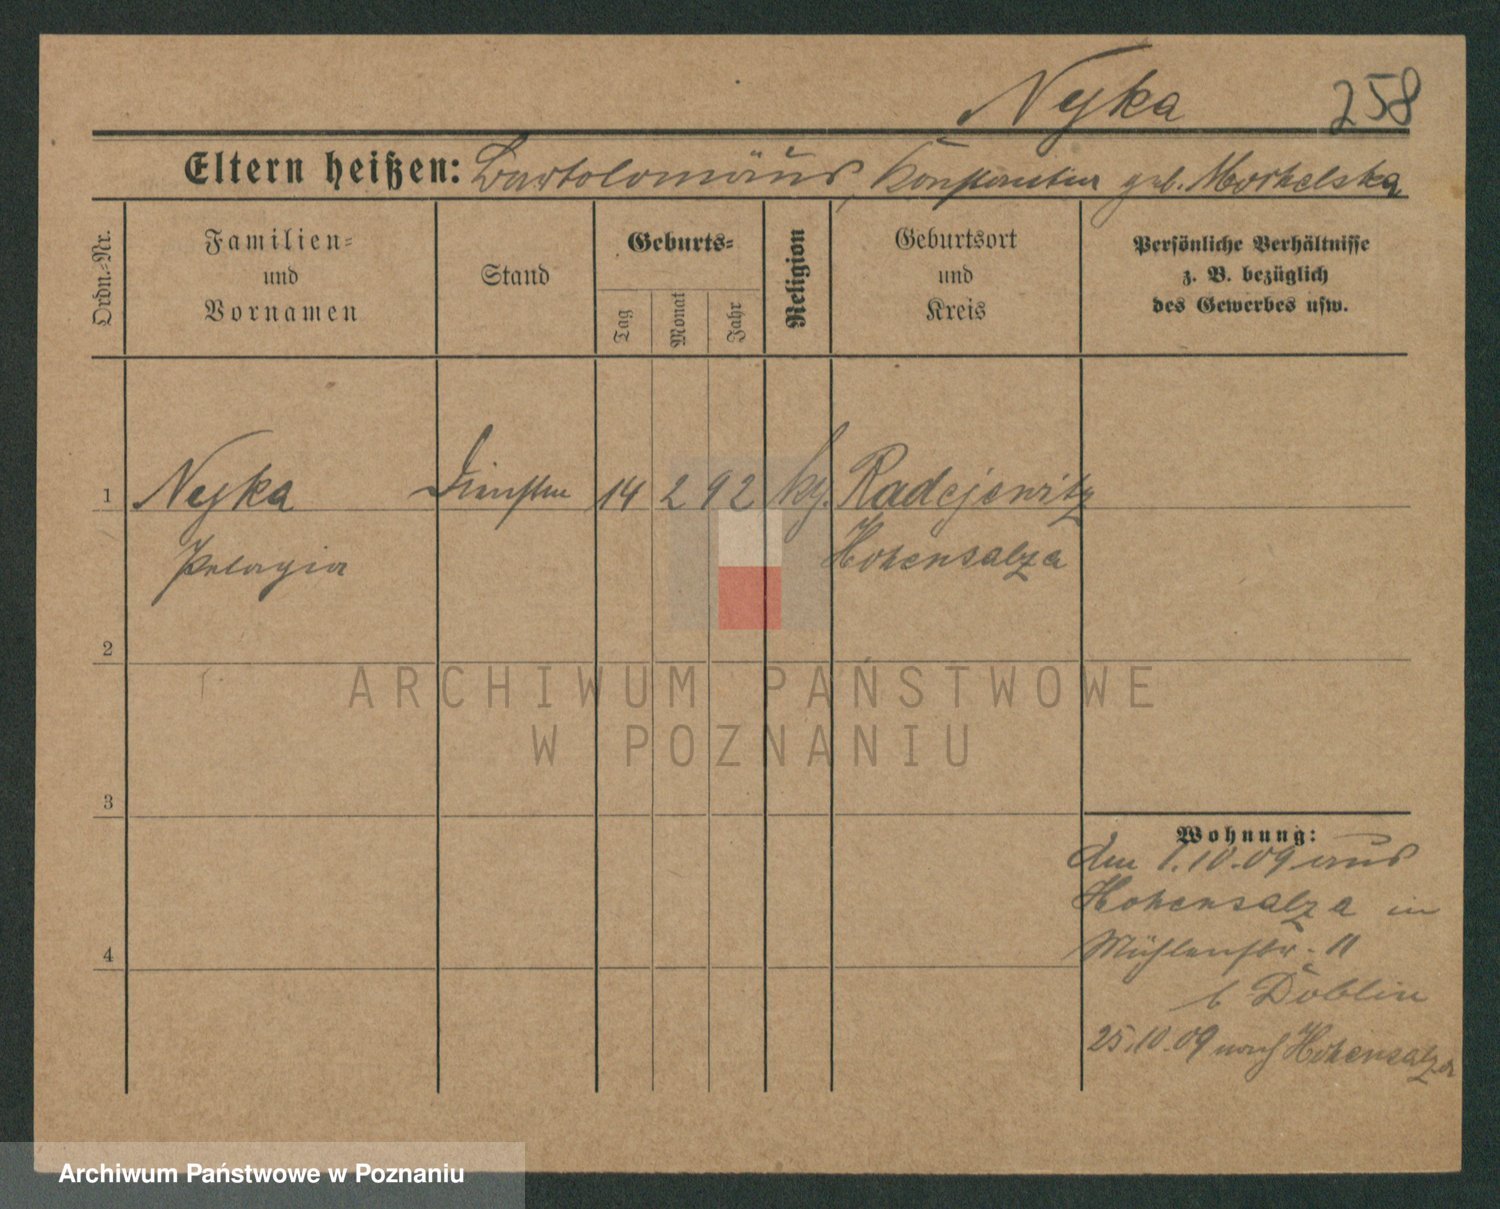 Nyka 258
Eltern heißen: Bartolomäus, Konstantin geb. Morkelska
Ordn.-Nr.
Familien-
und
Vornamen
Stand
Geburts-
Tag
Monat
Jahr
Religion
Geburtsort
und
Kreis
Persönliche Verhältnisse
z. B. bezüglich
des Gewerbes usw.
1 Nyka 14 2 92 Radejewitz
Pelagia Hohensalza
2
ARCHIWUM PAŃSTWOWE
W POZNANIU
3
Wohnung:
den 1.10.09 aus
Hohensalza in
Mühlenstr. 11
4
b Döblin
25.10.09 nach Hohensalza
Archiwum Państwowe w Poznaniu